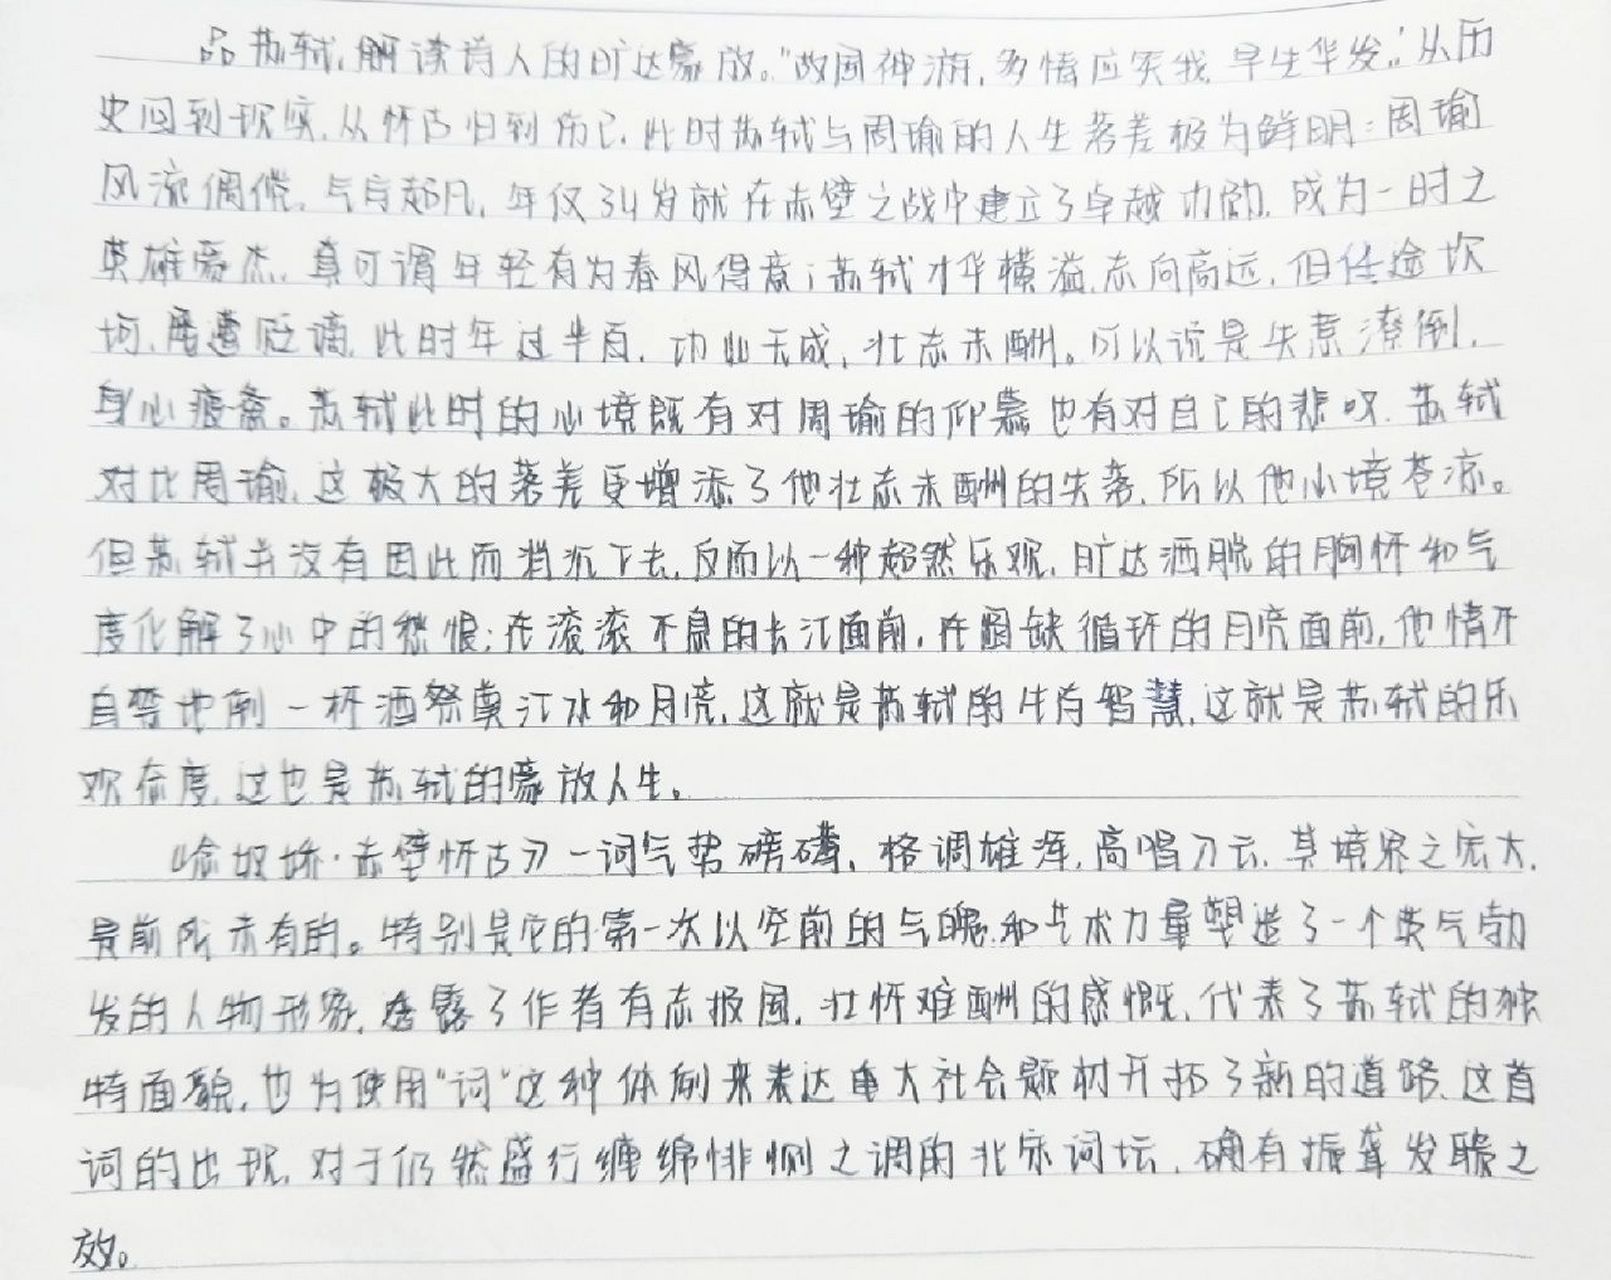 品苏轼,解读诗人的旷达豪放。“故国神游,多情应笑我,早生华发。”从历
史回到现实,从怀古归到伤己,此时苏轼与周瑜的人生落差极为鲜明:周瑜
风流倜傥,气宇超凡,年仅34岁就在赤壁之战中建立了卓越功勋,成为一时之
英雄豪杰,真可谓年轻有为春风得意;苏轼才华横溢,志向高远,但仕途坎
坷,屡遭贬谪,此时年过半百,功业无成,壮志未酬。可以说是失意潦倒,
身心疲惫。苏轼此时的心境既有对周瑜的仰慕也有对自己的悲叹,苏轼
对比周瑜,这极大的落差更增添了他壮志未酬的失落,所以他心境苍凉。
但苏轼并没有因此而消沉下去,反而以一种超然乐观,旷达洒脱的胸怀和气
度化解了心中的愁恨;在滚滚不息的长江面前,在圆缺循环的月亮面前,他情不
自禁地倒一杯酒祭奠江水和月亮,这就是苏轼的生存智慧,这就是苏轼的乐
观态度,这也是苏轼的豪放人生。
《念奴娇·赤壁怀古》一词气势磅礴,格调雄浑,高唱入云,其境界之宏大,
是前所未有的。特别是它的第一次以空前的气魄和艺术力量塑造了一个英气勃
发的人物形象,透露了作者有志报国,壮怀难酬的感慨,代表了苏轼的独
特面貌,也为使用“词”这种体制来表达重大社会题材开拓了新的道路,这首
词的出现,对于仍然盛行缠绵悱恻之调的北宋词坛,确有振聋发聩之
效。